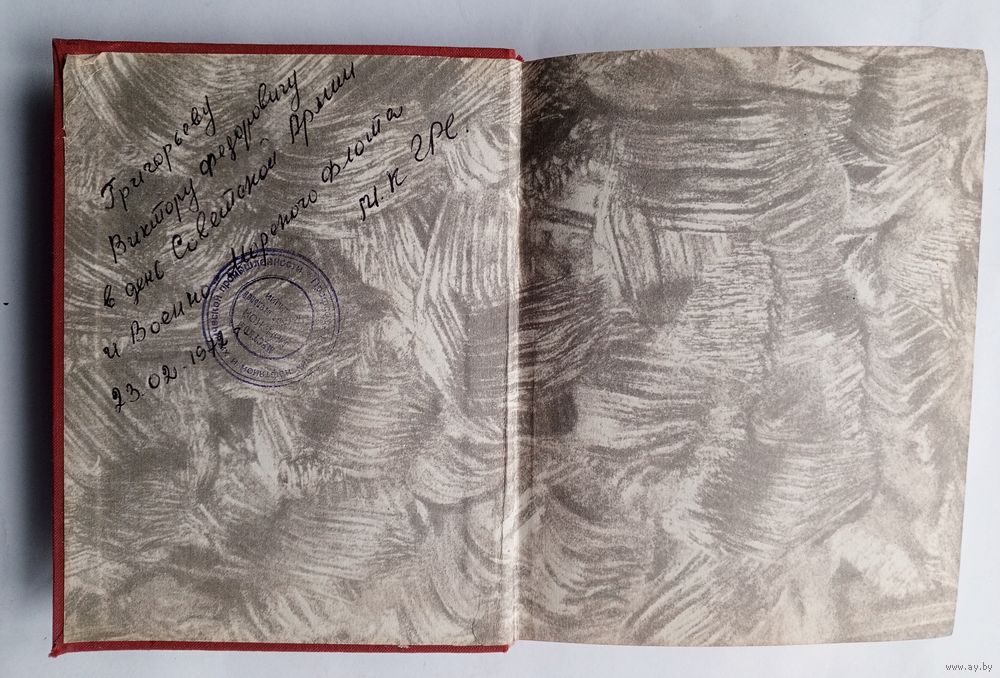 Григорьеву
Виктору Федоровичу
в день Советской Армии
и Военно-Морского флота
М.К ГРС.
23.02.1972
химической промышленности
www.ay.by